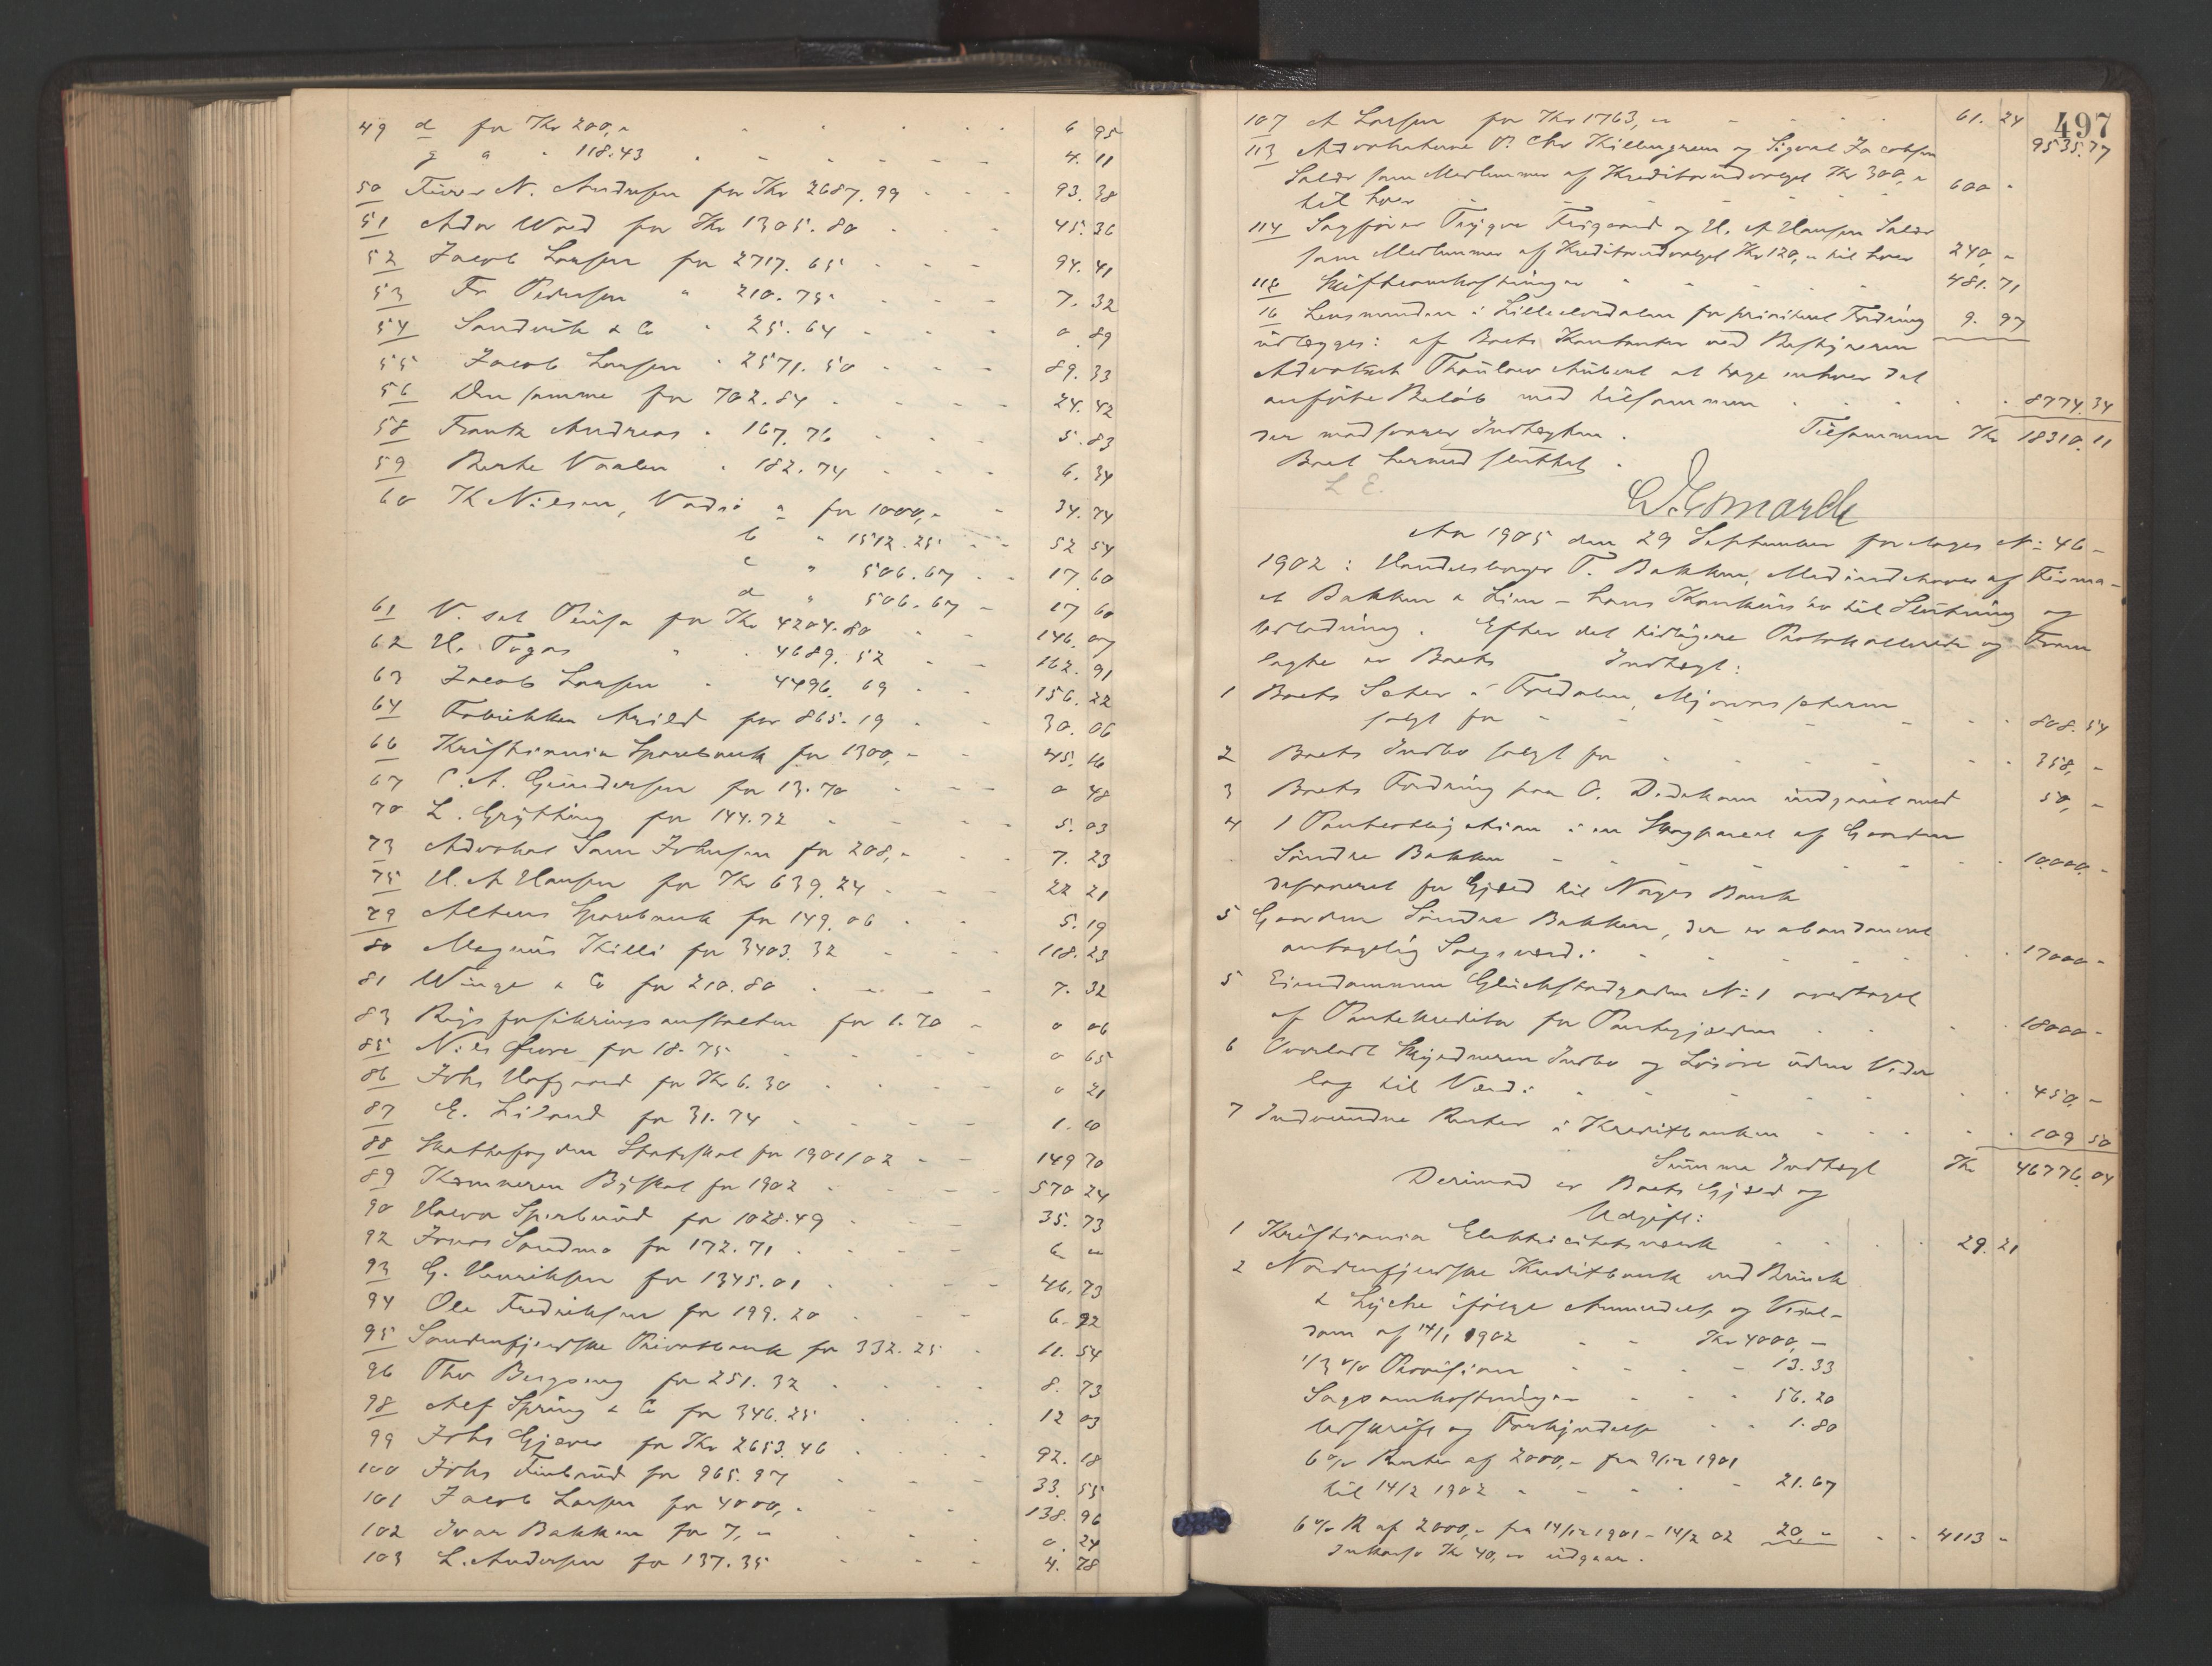 49 d for Kr 200,- 6 95
g a - 118.43 4. 11
50 Firma N. Andresen for Kr 2687.99 93. 38
51 Ador Wood for Kr 1305.80 45. 36
52 Jacob Larsen for 2717.65 94. 41
53 Fr Pedersen " 210.75 7. 32
54 Sandvik & Co " 25.64 0. 89
55 Jacob Larsen " 2571.50 89. 33
56 Den samme for 702.84 24. 42
58 Frantz Andreas " 167.76 5. 83
59 Berte Vaalen " 182.74 6. 34
60 K Nilsen, Vadsö a for 1000,- 34. 74
b " 1512.25 52 54
c " 506.67 17. 60
d " 506.67 17 60
61 for Kr 4204.80 146. 07
62 4689.52 162. 91
63 Jacob Larsen " 4496.69 156. 22
64 Fabrikken Arild for 865.19 30. 06
66 Kristiania Sparebank for 1300,- 45. 16
67 C. A. Gundersen for 13.70 0 48
70 L. Grytting for 144.72 5. 03
73 Advokat Sam Johnsen for 208,- 7. 23
75 H. A Hansen for Kr 639.24 22 21
79 Altens Sparebank for 149.06 5. 19
80 Magnus Killi for 3403.32 118. 23
81 Winge & Co for 210.80 7. 32
83 Rigsforsikringsanstalten for 1.70 0 06
85 Nils Fure for 18.75 0 65
86 Johs Hofgaard for Kr 6.30 0 21
87 E. Liland for 31.74 1. 10
88 Skattefogden Statsskat for 1901/02 149 70
89 Kæmneren Byskat for 1902 570 24
90 for 1028.49 35. 73
92 Jonas Sandmo for 172.71 6
93 G. Henriksen for 1345.01 46. 73
94 Ole Fredriksen for 199.20 6. 92
95 Søndenfjeldske Privatbank for 332.25 11. 54
96 Thv Bergseng for 251.32 8. 73
98 Alf Spring & Co for 346.25 12 03
99 Johs Gjæver for Kr 2653.46 92. 18
100 Johs for 965.97 33. 55
101 Jacob Larsen for 4000,- 138. 96
102 Ivar Bakken for 7,- 0. 24
103 L. Andersen for 137.35 4. 78
497
107 A Larsen for Kr 1763,- 61. 24
9535.77
113 Advokaterne P. Chr Killengreen og Sigvat Jacobsen
Salær som Medlemmer af Kreditorudvalget Kr 300,-
til hver 600 -
114 Sagfører Trygve Fisgaard og H. A Hansen Salær
som Medlemmer af Kreditorudvalget Kr 120,- til hver 240,-
115 Skifteomkostninger 481. 71
16 Lensmanden i Lilleelvedalen for prioritert Fordring 9. 97
udlægges: af Boets Kontanter ved Bestyreren
Advokat Thaulow Aubert at tage enhver det
anførte Beløb med tilsammen 8774.34
der modsvarer Indtægten. Tilsammen Kr 18310.11
Boet hermed sluttet.
L E.
Aar 1905 den 29 September foretoges No 46 -
1902: Handelsborger P. Bakken, Medindehaver af Firma-
et Bakken & Lien - hans Konkursbo til Slutning og
Udlodning. Efter det tidligere Protokollerede og Frem
lagte er Boets Indtægt:
1 Boets Sæter i Foldalen,
solgt for 808.54
2 Boets Indbo solgt for 358,-
3 Boets Fordring paa O. Dedekam indgaaet med 50,-
4 1 Panteobligation i en Skogparcel af Gaarden
Søndre Bakken 10000,-
deponeret for Gjæld til Norges Bank
5 Gaarden Søndre Bakken, der er abandoneret
antagelig Salgsværd: 17000-
5 Eiendommen Glückstadgaden No 1 overtaget
af Pantekreditor for Pantegjælden 18000-
6 Overladt Skyldneren Indbo og Løsøre uden Veder
lag til Værd: 450,-
7 Indvundne Renter i Kreditbanken 109 50
Summa Indtægt Kr 46776.04
Derimod er Boets Gjæld og
Udgift:
1 Kristiania Elektricitetsværk 29. 21
2 Nordenfjeldske Kreditbank ved Bruck
& Lycke ifølge Anmeldelse og Vexel-
dom af 14/1 1902 Kr 4000,-
1/3 % Provision 13.33
Sagsomkostninger 56.20
Udskrift og Forkyndelse 1.80
6 % Renter af 2000,- fra 9/12 1901
til 14/2 1902 21.67
6 % R af 2000,- fra 14/12 1901 - 14/2 02 20,- 4113 -
Inkasso Kr 40,- udgaar.